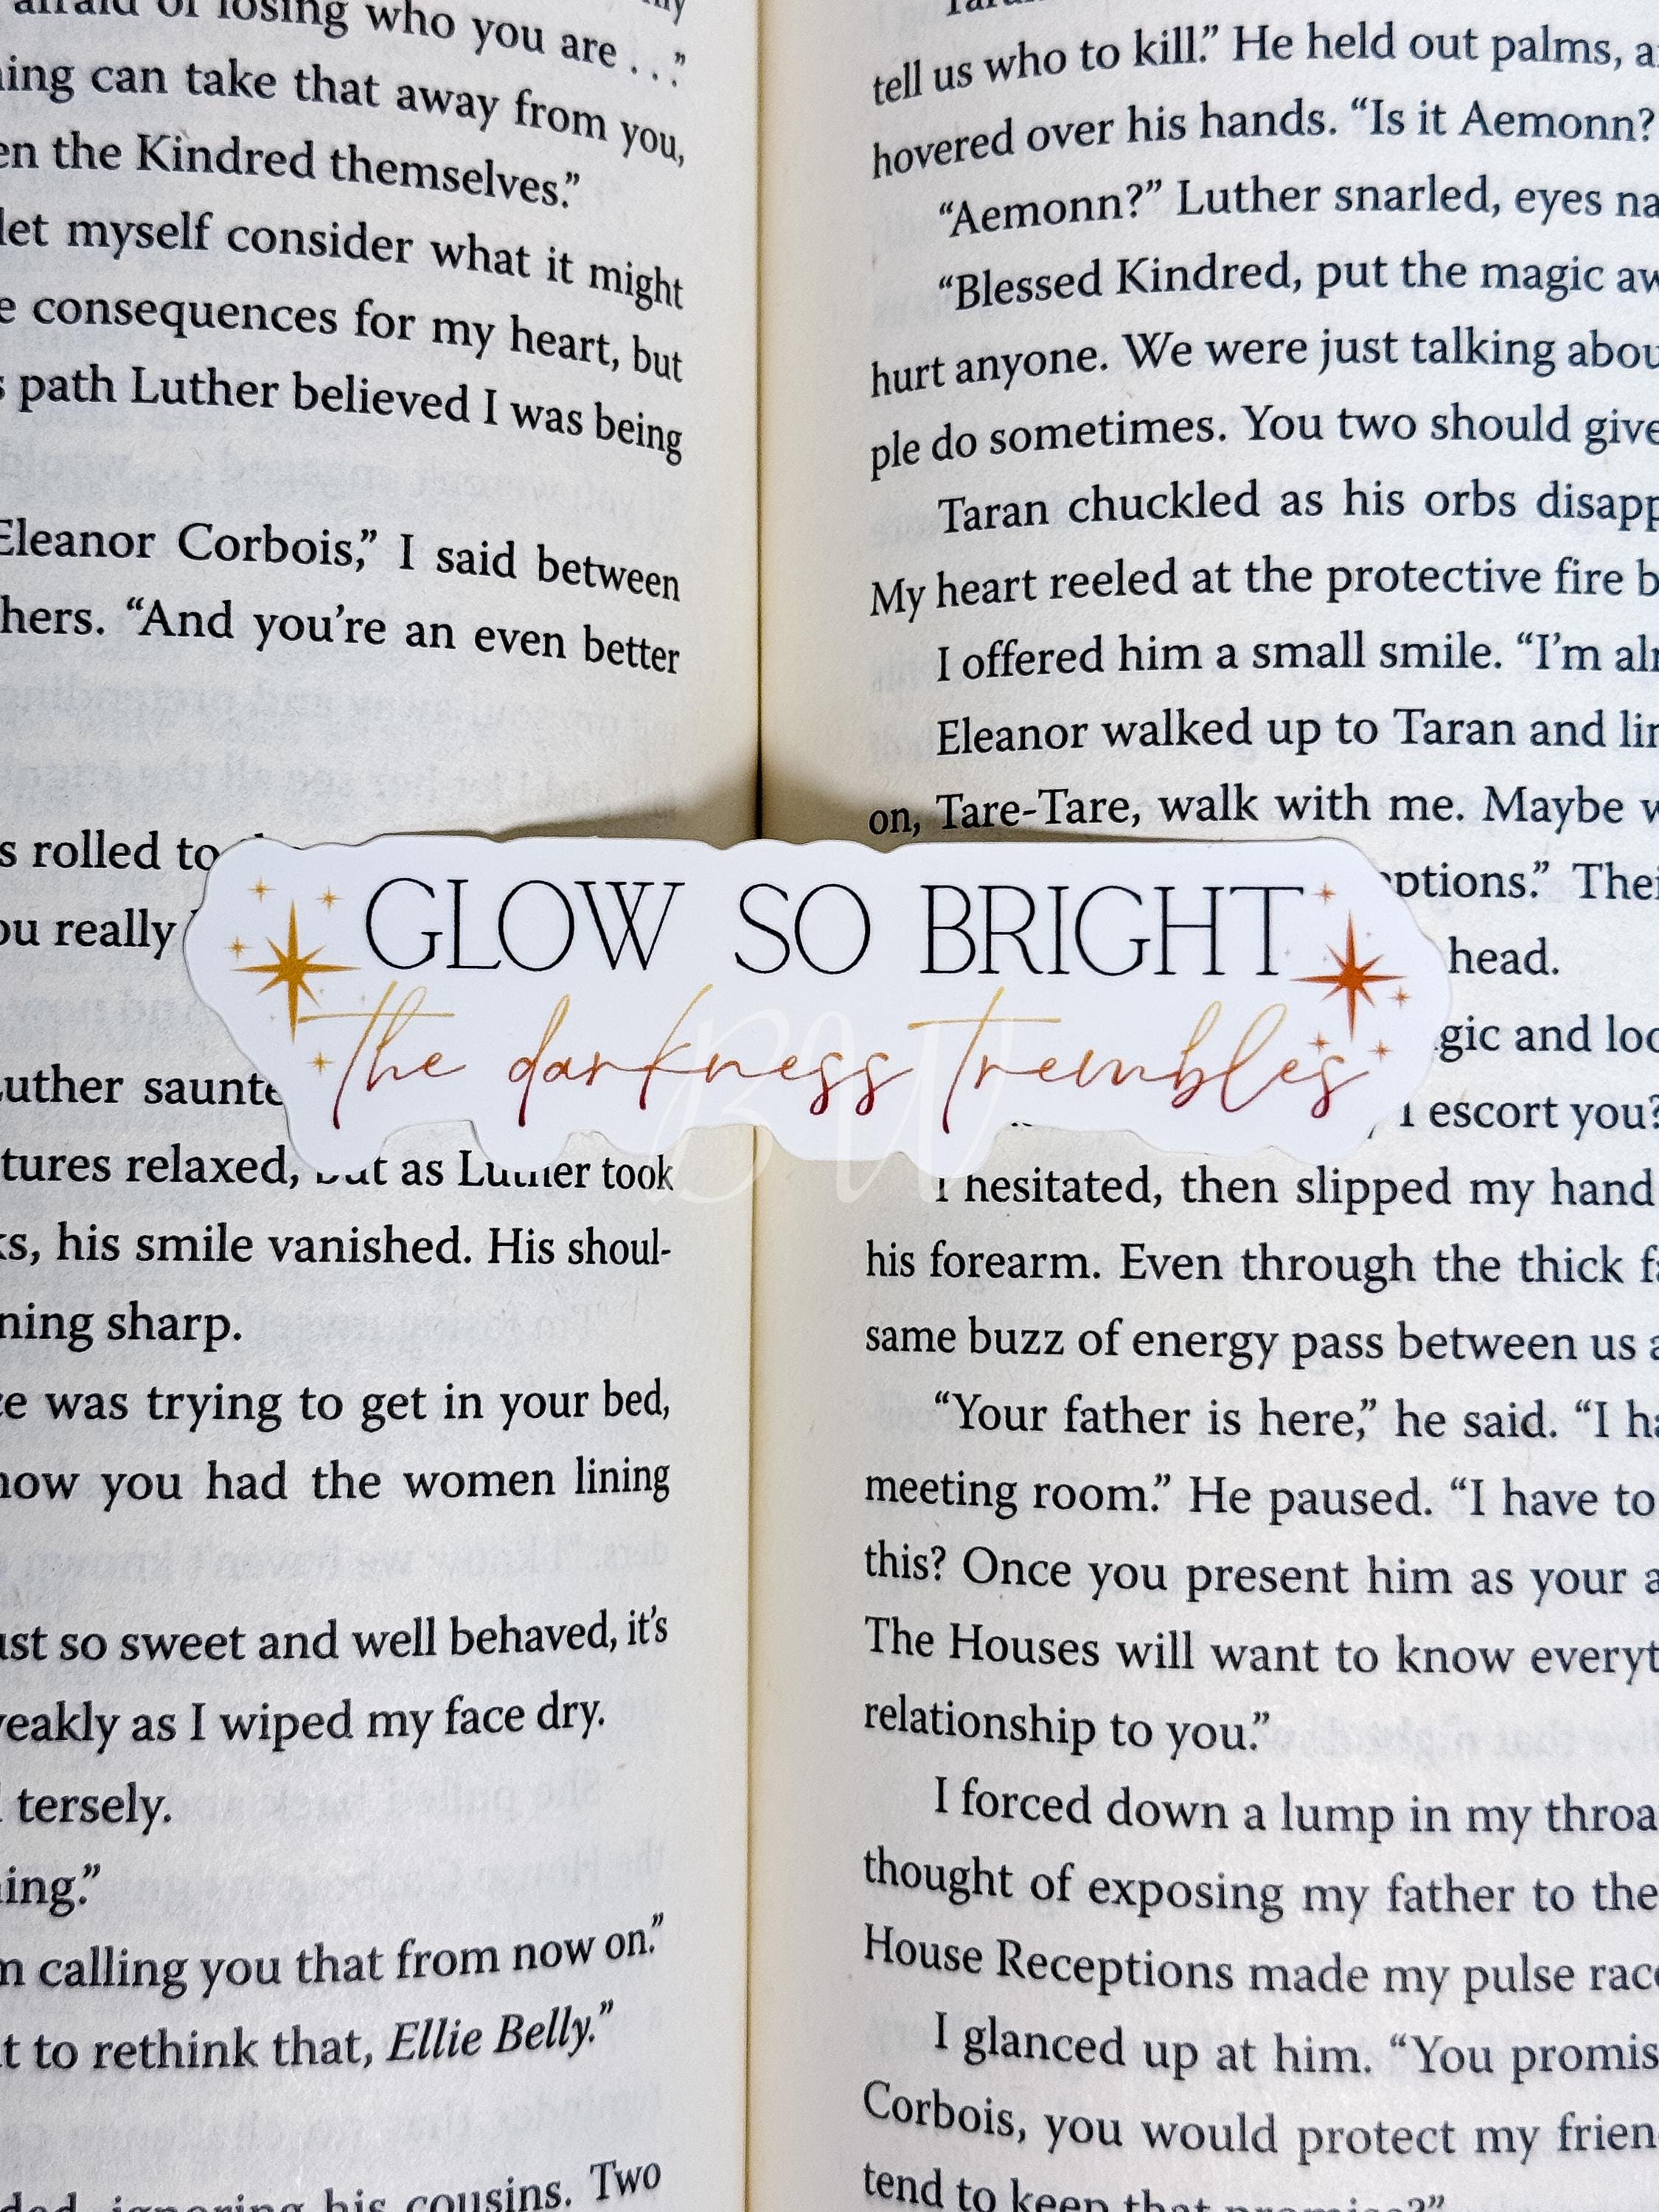 afraid of losing who you are . . ."
ing can take that away from you,
the Kindred themselves."
let myself consider what it might
consequences for my heart, but
path Luther believed I was being
Eleanor Corbois," I said between
hers. "And you're an even better
rolled to
really
Luther
tures relaxed, but as Luther took
his smile vanished. His shoul-
ning sharp.
was trying to get in your bed,
how you had the women lining
ust so sweet and well behaved, it's
weakly as I wiped my face dry.
tersely.
ing."
calling you that from now on."
to rethink that, Ellie Belly."
ignoring his cousins. Two
GLOW SO BRIGHT
the darkness trembles
BW
tell us who to kill." He held out palms,
hovered over his hands. "Is it Aemonn?
"Aemonn?" Luther snarled, eyes
"Blessed Kindred, put the magic
hurt anyone. We were just talking
ple do sometimes. You two should give
Taran chuckled as his orbs
My heart reeled at the protective fire
I offered him a small smile. "I'm
Eleanor walked up to Taran and
on, Tare-Tare, walk with me. Maybe
ptions."
head.
gic and
I escort you?
I hesitated, then slipped my hand
his forearm. Even through the thick
same buzz of energy pass between us
"Your father is here," he said. "I
meeting room." He paused. "I have to
this? Once you present him as your
The Houses will want to know
relationship to you."
I forced down a lump in my
thought of exposing my father to the
House Receptions made my pulse
I glanced up at him. "You
Corbois, you would protect my
tend to keep that promise?"